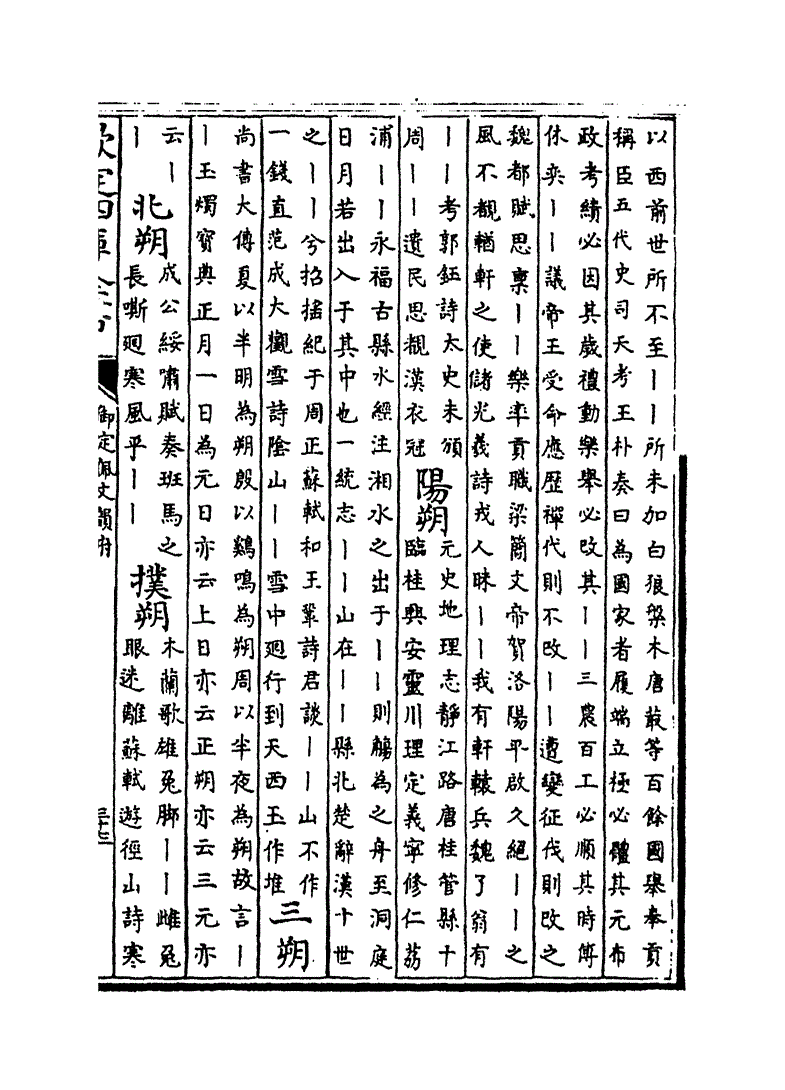 以西前世所不至——所未加白狼槃木唐菆等百餘國舉奉貢
稱臣五代史司天考王朴奏曰為國家者履端立極必體其元布
政考績必因其歲禮動樂舉必改其——三農百工必順其時傅
休奕——議帝王受命應歷禪代則不改——遭變征伐則改之
魏都賦思稟——樂率貢職梁簡文帝賀洛陽平啟久絕——之
風不覩輶軒之使儲光羲詩戎人昧——我有軒轅兵魏了翁有
——考郭鈺詩太史未頒
周——遺民思覩漢衣冠
陽朔
元史地理志靜江路唐桂管縣十
臨桂興安靈川理定義寧修仁荔
浦——永福古縣水經注湘水之出于——則觴為之舟至洞庭
日月若出入于其中也一統志——山在——縣北楚辭漢十世
之——兮招搖紀于周正蘇軾和王鞏詩君談——山不作
一錢直范成大觀雪詩陰山——雪中廻行到天西玉作堆
三朔
尚書大傳夏以半明為朔殷以鷄鳴為朔周以半夜為朔故言—
—玉燭寶典正月一日為元日亦云上日亦云正朔亦云三元亦
云—
—
北朔
成公綏嘯賦奏班馬之
長嘶廻寒風乎——
撲朔
木蘭歌雄兔脚——雌兔
眼迷離蘇軾遊徑山詩寒
欽定四庫全書
御定佩文韻府